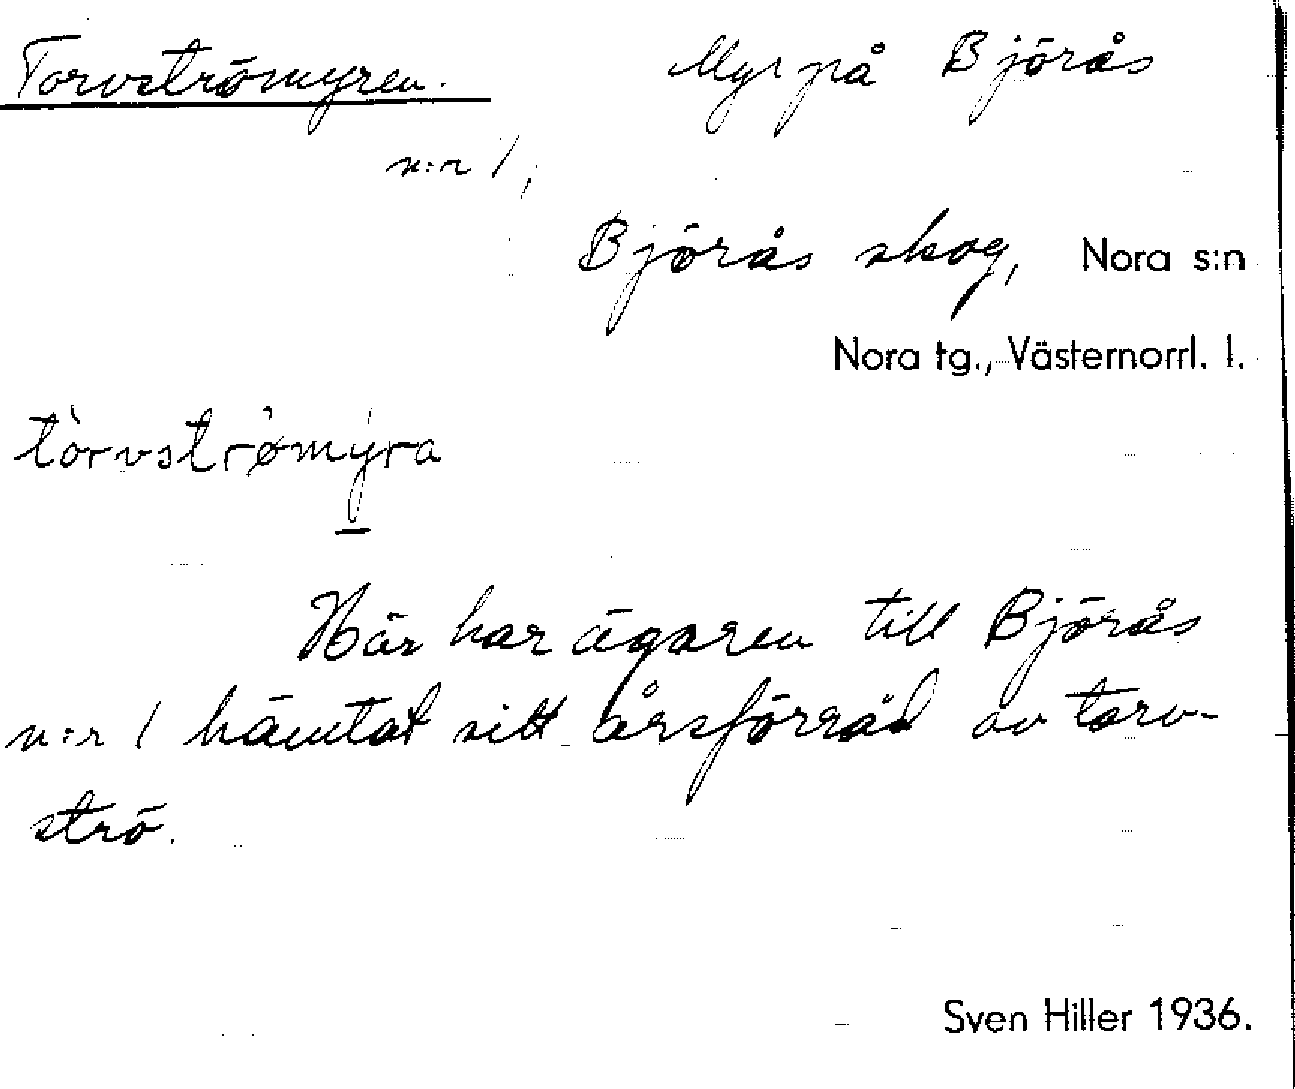 Torvströmyren. Myr på Björås
n:r 1,
Björås skog, Nora s:n
Nora tg., Västernorrl. l.
tòrvstrømýra
Här har ägaren till Björås
n:r 1 hämtat sitt årsförråd av torv-
strö.
Sven Hiller 1936.